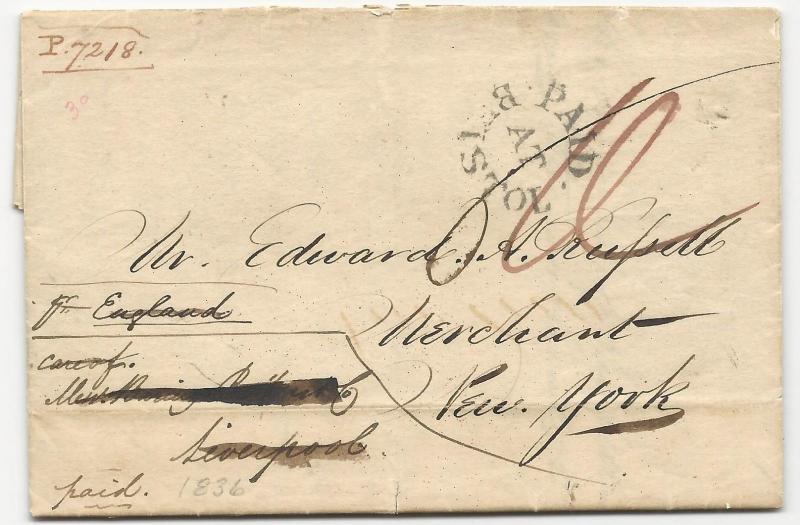 P. 7218.
30
PAID. AT BRISTOL
Mr. Edward. A. Russell
Merchant
New. York
pr England
care of.
Messrs
Liverpool.
paid. 1836